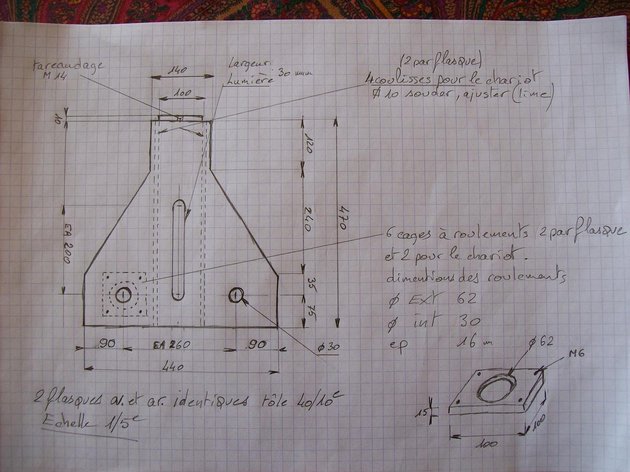 tareaudage
M 14
140
100
Largeur
Lumière 30 mm
(2 par flasque)
4 coulisses pour le chariot
Ø 10 souder, ajuster (lime)
10
EA 200
120
240
470
35
75
6 cages à roulements 2 par flasque
et 2 pour le chariot.
dimentions des roulements
Ø Ext 62
Ø int 30
ep 16 m
90
EA 260
90
Ø 30
440
2 flasques av. et ar. identiques tôle 40/10e
Echelle 1/5e
Ø 62
M6
15
100
100